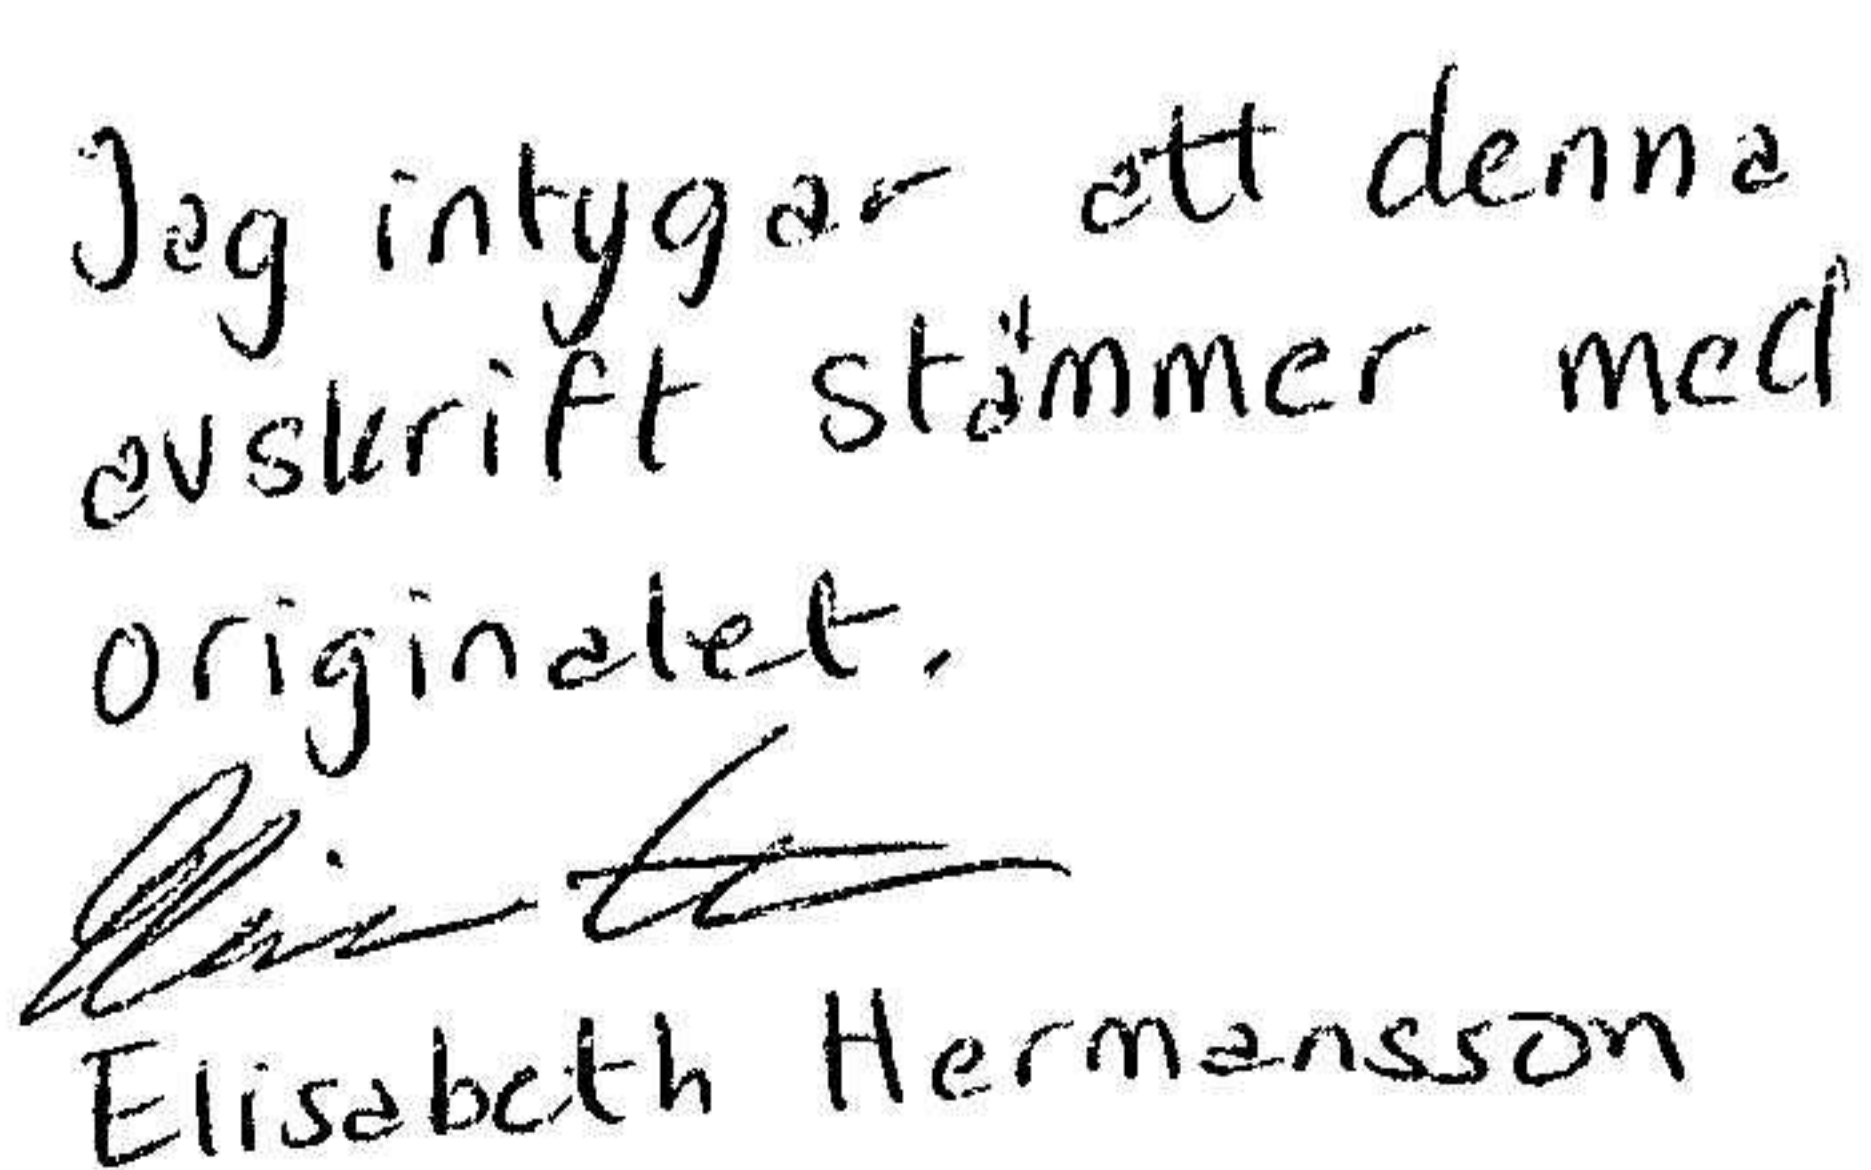 Jag intygar att denna
avskrift stämmer med
originalet.
Elisabeth Hermansson